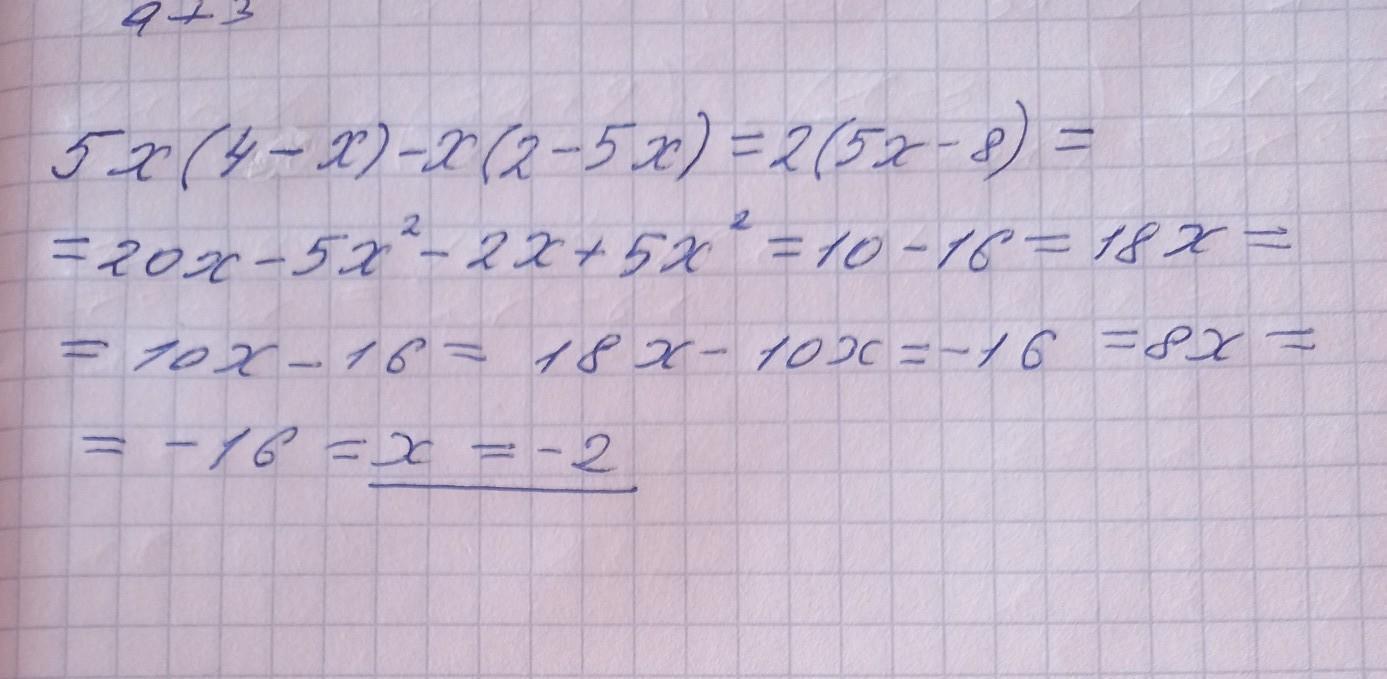 a+3
5x(4-x)-x(2-5x)=2(5x-8)=
=20x-5x²-2x+5x²=10-16=18x=
=10x-16=18x-10x=-16=8x=
=-16=x=-2